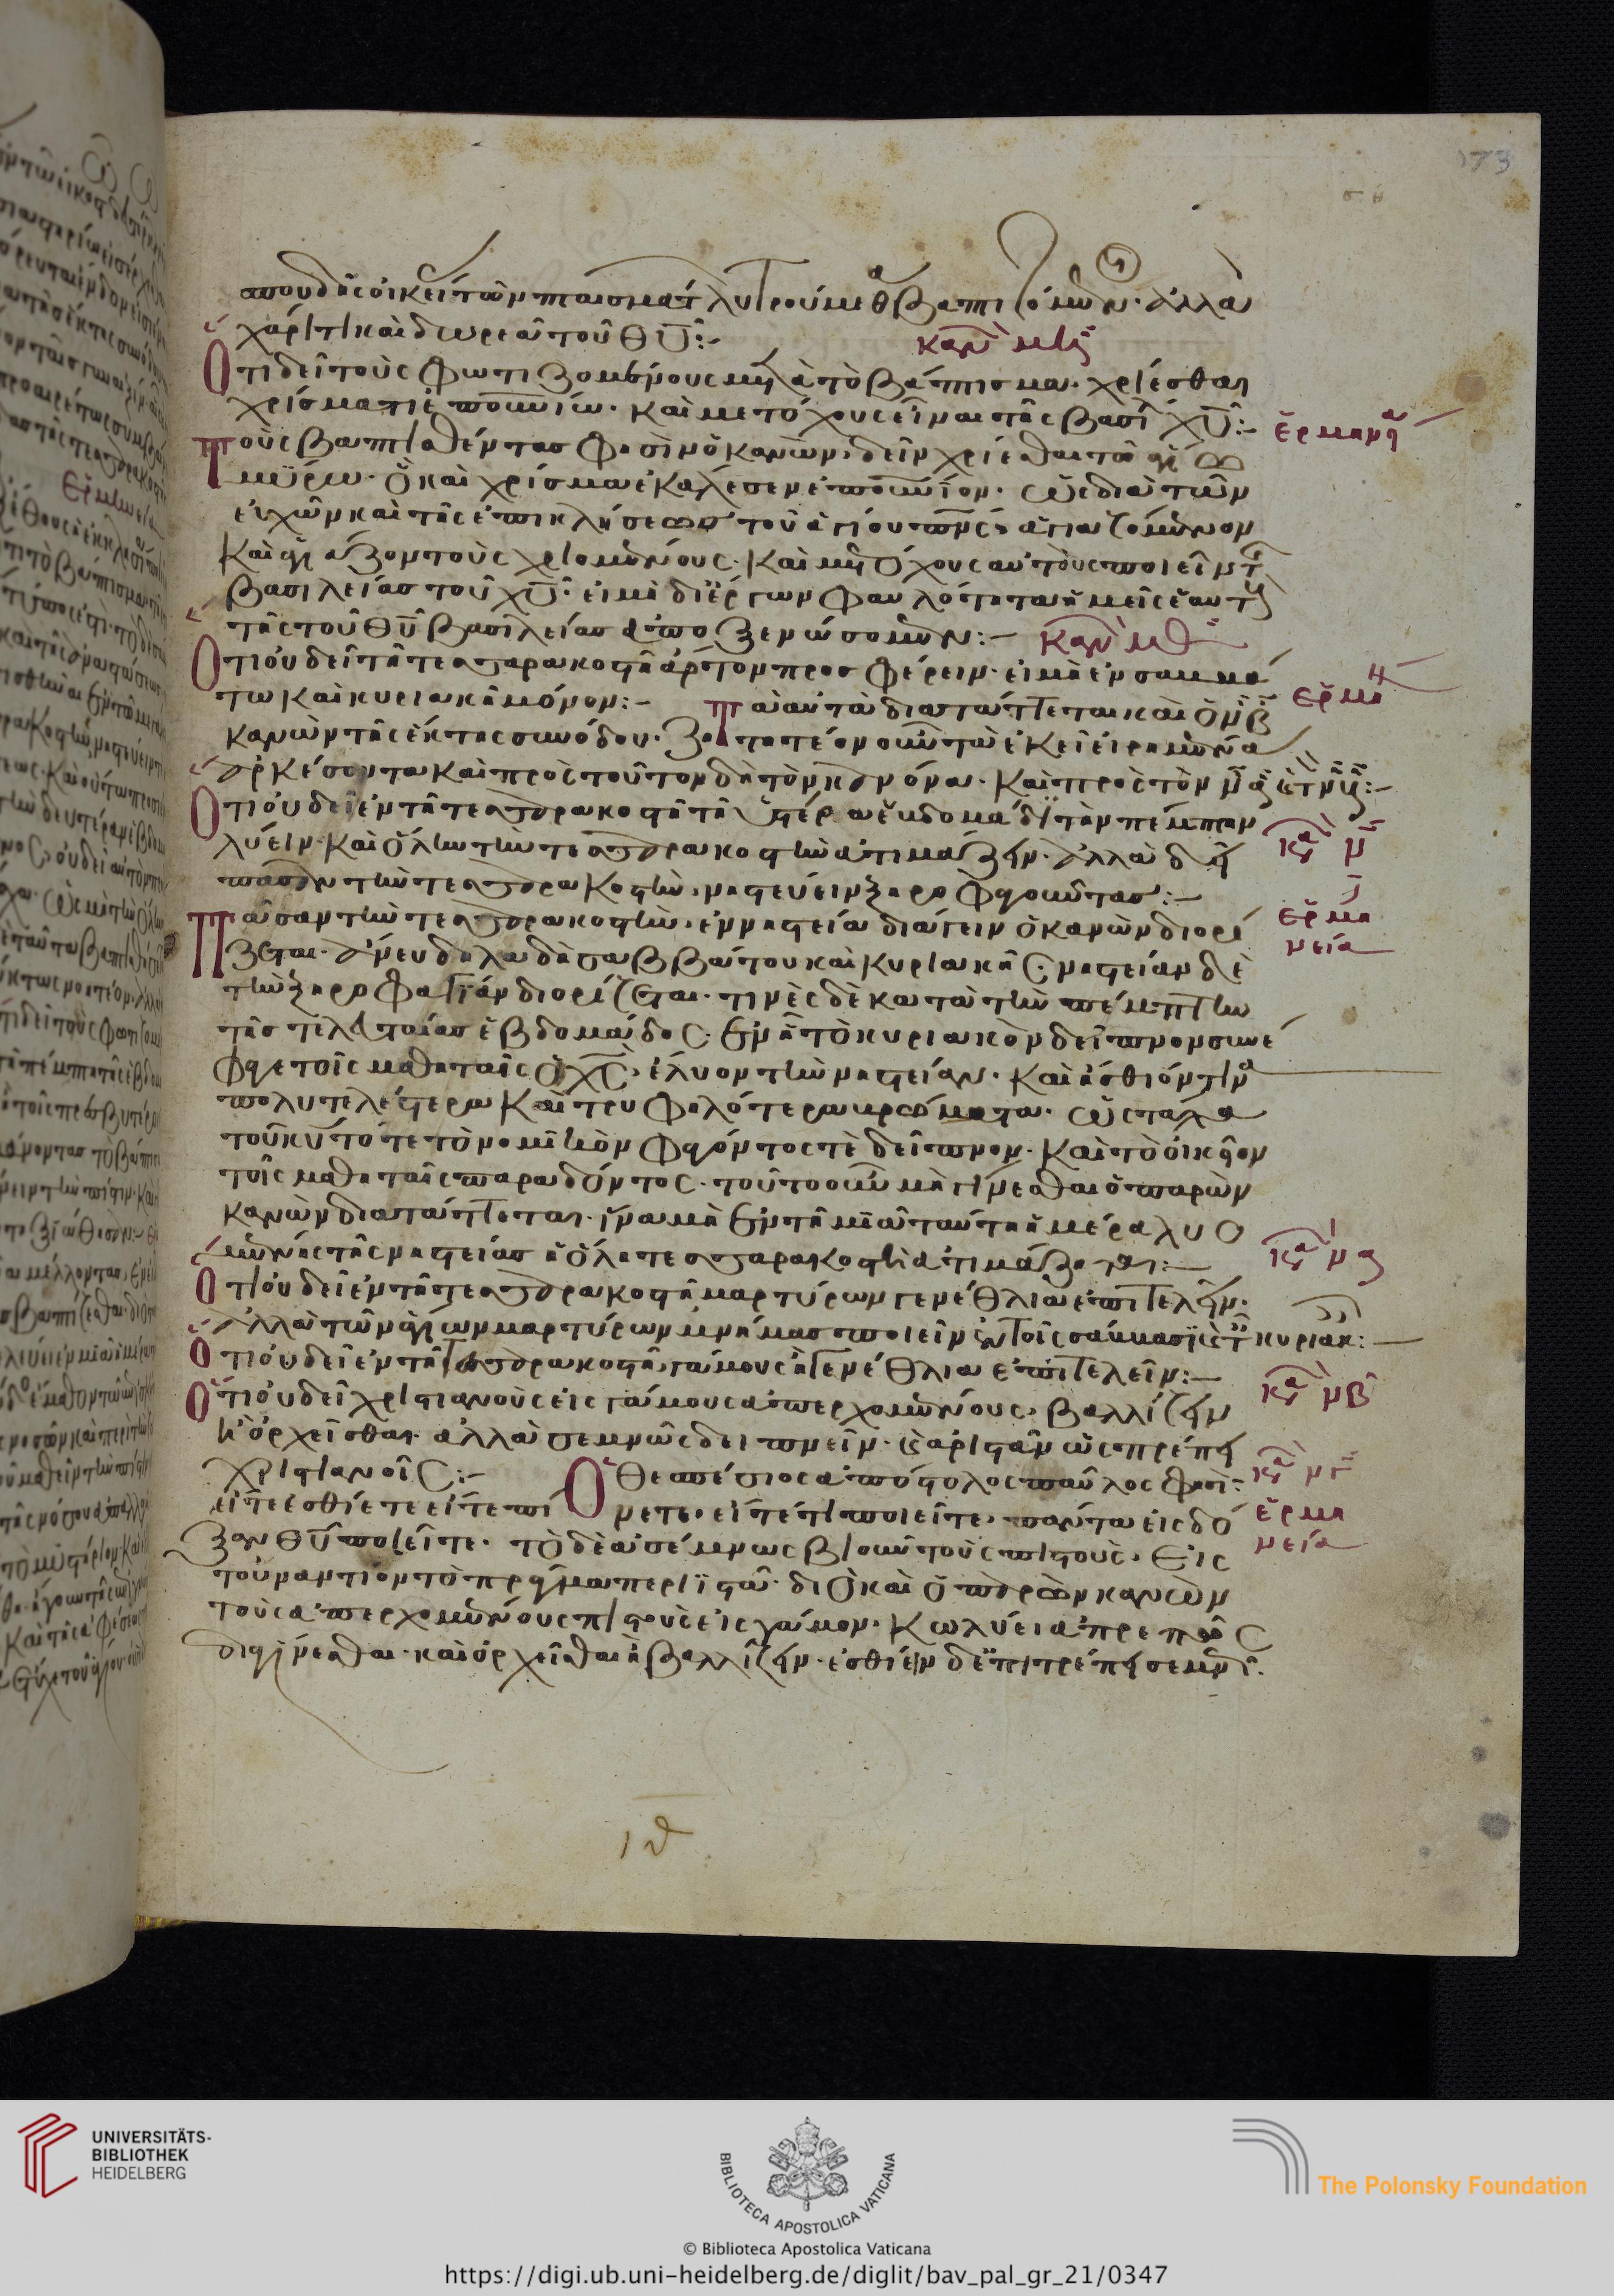 173
σπουδῆς οἰκεί τῶν πταισμάτ λυτρούμεθα βαπτιζόμενοι. ἀλλὰ
χάριτι καὶ δωρεᾶ τοῦ θυ:-
κανὼν μη
Ὅτι δεῖ τοὺς φωτιζομένους μετὰ τὸ βάπτισμα. χρίεσθαι
χρίσματι ἐπουνίω. καὶ μετόχους εἶναι τῆς βασιλ χυ:-
ἑρμην
Τοὺς βαπτισθέντας φησὶν ὁ κανὼν, δεῖν χρίεσθαι τῶ ἁγίω
μύρω. ὃ καὶ χρίσμα ἐκάλεσεν ἐπουνιον. ὡς διὰ τῶν
εὐχῶν καὶ τῆς ἐπικλήσεως τοῦ ἁγίου πνς, ἁγιαζόμενον
καὶ ἁγιάζον τοὺς χριομένους. καὶ μετόχους αὐτοὺς ποιεῖν τ
βασιλείας τοῦ χυ. εἰ μὴ δι ἔργων φαυλότητα ἡμεῖς ἑαυτ
τῆς τοῦ θυ βασιλείας ἀποξενώσομεν:-
κανὼν μθ
Ὅτι οὐ δεῖ τῆ τεσσαρακοστῆ ἄρτον προσφέρειν. εἰ μὴ ἐν σαββά
τω καὶ κυριακῆ μόνον:- Τὰ αὐτὰ διατάττεται καὶ ὁ νβ
ἑρμη
κανὼν τῆς ἕκτης συνόδου. ζητητέον οὖν τὰ ἐκεῖ εἰρημένα
ἀρκέσοντα καὶ πρὸς τοῦτον δὴ τὸν κανόνα. καὶ πρὸς τὸν
Ὅτι οὐ δεῖ ἐν τῆ τεσσαρακοστῆ τῆ ὑστέρα ἑβδομάδι τὴν πέμπτην
κα ν
λύειν. καὶ ὅλην τὴν τεσσαρακοστὴν ἀτιμάζειν. ἀλλὰ δεῖ
πᾶσαν τὴν τεσσαρακοστὴν, νηστεύειν ξηροφαγοῦντας:-
Πᾶσαν τὴν τεσσαρακοστὴν, ἐν νηστεία διάγειν ὁ κανὼν διορί
ἑρμη
νεία
ζεται. ἄνευ δηλαδὴ σαββάτου καὶ κυριακῆς. νηστείαν δὲ
τὴν ξηροφαγίαν διορίζεται. τινὲς δὲ κατὰ τὴν πέμπτην
τῆς τελευταίας ἑβδομάδος. ἐν ᾗ τὸ κυριακὸν δεῖπνον συνέ
φαγε τοῖς μαθηταῖς ὁ χς, ἔλυον τὴν νηστείαν. καὶ ἤσθιόν τινα
πολυτελέστερα καὶ τρυφηλότερα βρώματα. ὡς τάχα
τοῦ κυ τότε τὸ νομικὸν φαγόντος τὲ δεῖπνον. καὶ τὸ οἰκεῖον
τοῖς μαθηταῖς παραδόντος. τοῦτο οὖν μὴ γίνεσθαι ὁ παρὼν
κανὼν διατάττεται. ἵνα μὴ ἐν τῆ μιᾶ ταύτη ἡμέρα λυο
μένης τῆς νηστείας ἡ ὅλη τεσσαρακοστὴ ἀτιμάζηται:-
κα να
Ὅτι οὐ δεῖ ἐν τῆ τεσσαρακοστῆ μαρτύρων γενέθλια ἐπιτελεῖν.
ἀλλὰ τῶν ἁγίων μαρτύρων μνήμας ποιεῖν ἐν τοῖς σάββασι κυριακ:-
Ὅτι οὐ δεῖ ἐν τῆ τεσσαρακοστῆ γάμους ἢ γενέθλια ἐπιτελεῖν:-
κα νβ
Ὅτι οὐ δεῖ χριστιανοὺς εἰς γάμους ἀπερχομένους, βαλλίζειν
ἢ ὀρχεῖσθαι. ἀλλὰ σεμνῶς δειπνεῖν. ἢ ἀριστᾶν ὡς πρέπει
χριστιανοῖς:- Ὁ θεσπέσιος ἀπόστολος παῦλος φησί:
κα νγ
εἴτε ἐσθίετε εἴτε πίνετε, εἴτέ τι ποιεῖτε, πάντα εἰς δό
ἑρμη
νεία
ξαν θυ ποιεῖτε. τὸ δὲ ἀσέμνως βιοῦν τοὺς πιστοὺς, εἰς
τοὐναντίον τὸ πρᾶγμα περιϊστᾶ. διὸ καὶ ὁ παρὼν κανὼν
τοὺς ἀπερχομένους πιστοὺς εἰς γάμον. κωλύει ἀπρεπῶς
διαγίνεσθαι. καὶ ὀρχεῖσθαι ἢ βαλλίζειν. ἐσθίειν δ ἐπιτρέπει σεμν.
UNIVERSITÄTS-
BIBLIOTHEK
HEIDELBERG
BIBLIOTECA APOSTOLICA VATICANA
The Polonsky Foundation
© Biblioteca Apostolica Vaticana
https://digi.ub.uni-heidelberg.de/diglit/bav_pal_gr_21/0347